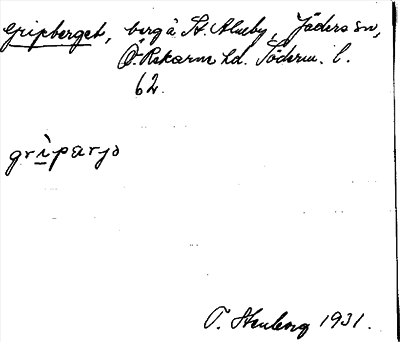 Gripberget, berg å St. Åluby, Jäders sn,
Ö. Rekarne hd. Söderm. l.
62.
grìparjə
T. Stenberg 1931.